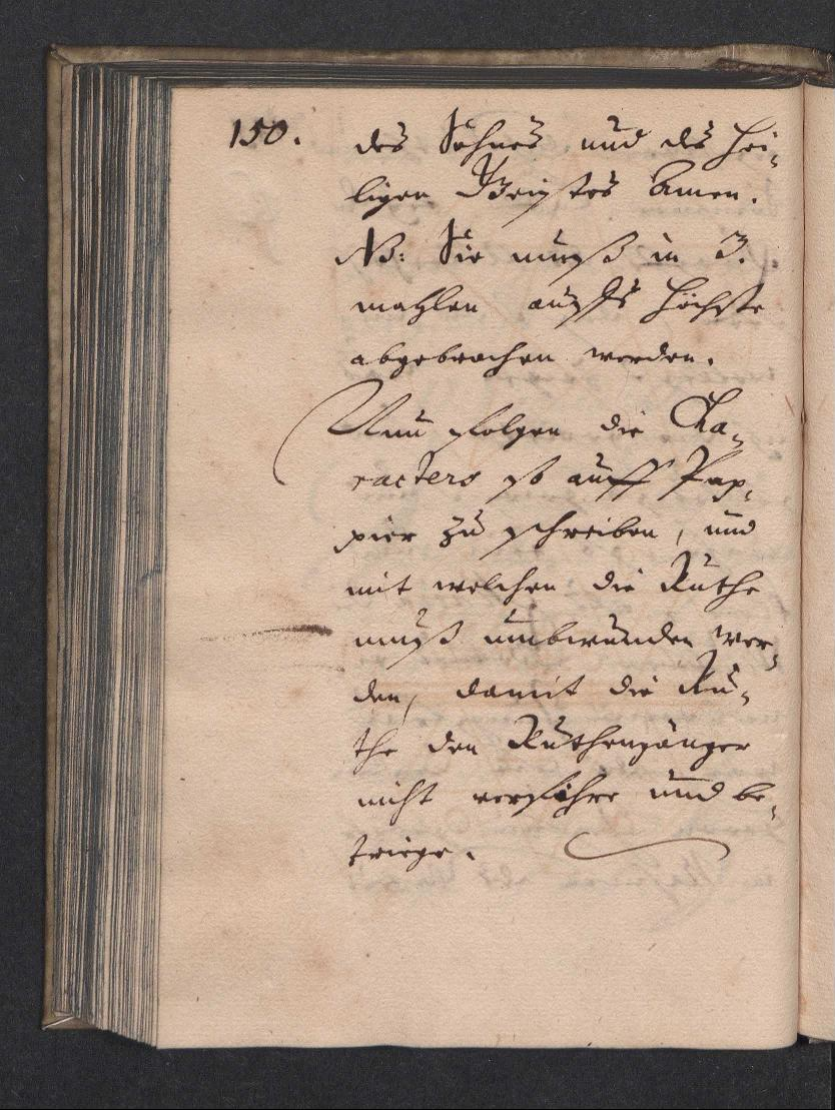 150.
des Sohnes und des Hei-
ligen Geistes Amen.
NB: Sie muß in 3.
mahlen auffs höchste
abgebrochen werden.
Nun folgen die Cha-
racters so auff Pap-
pier zu schreiben, und
mit welchen die Ruthe
muß umbwunden wer-
den, damit die Ru-
the den Ruthengänger
nicht verführe und be-
triege.